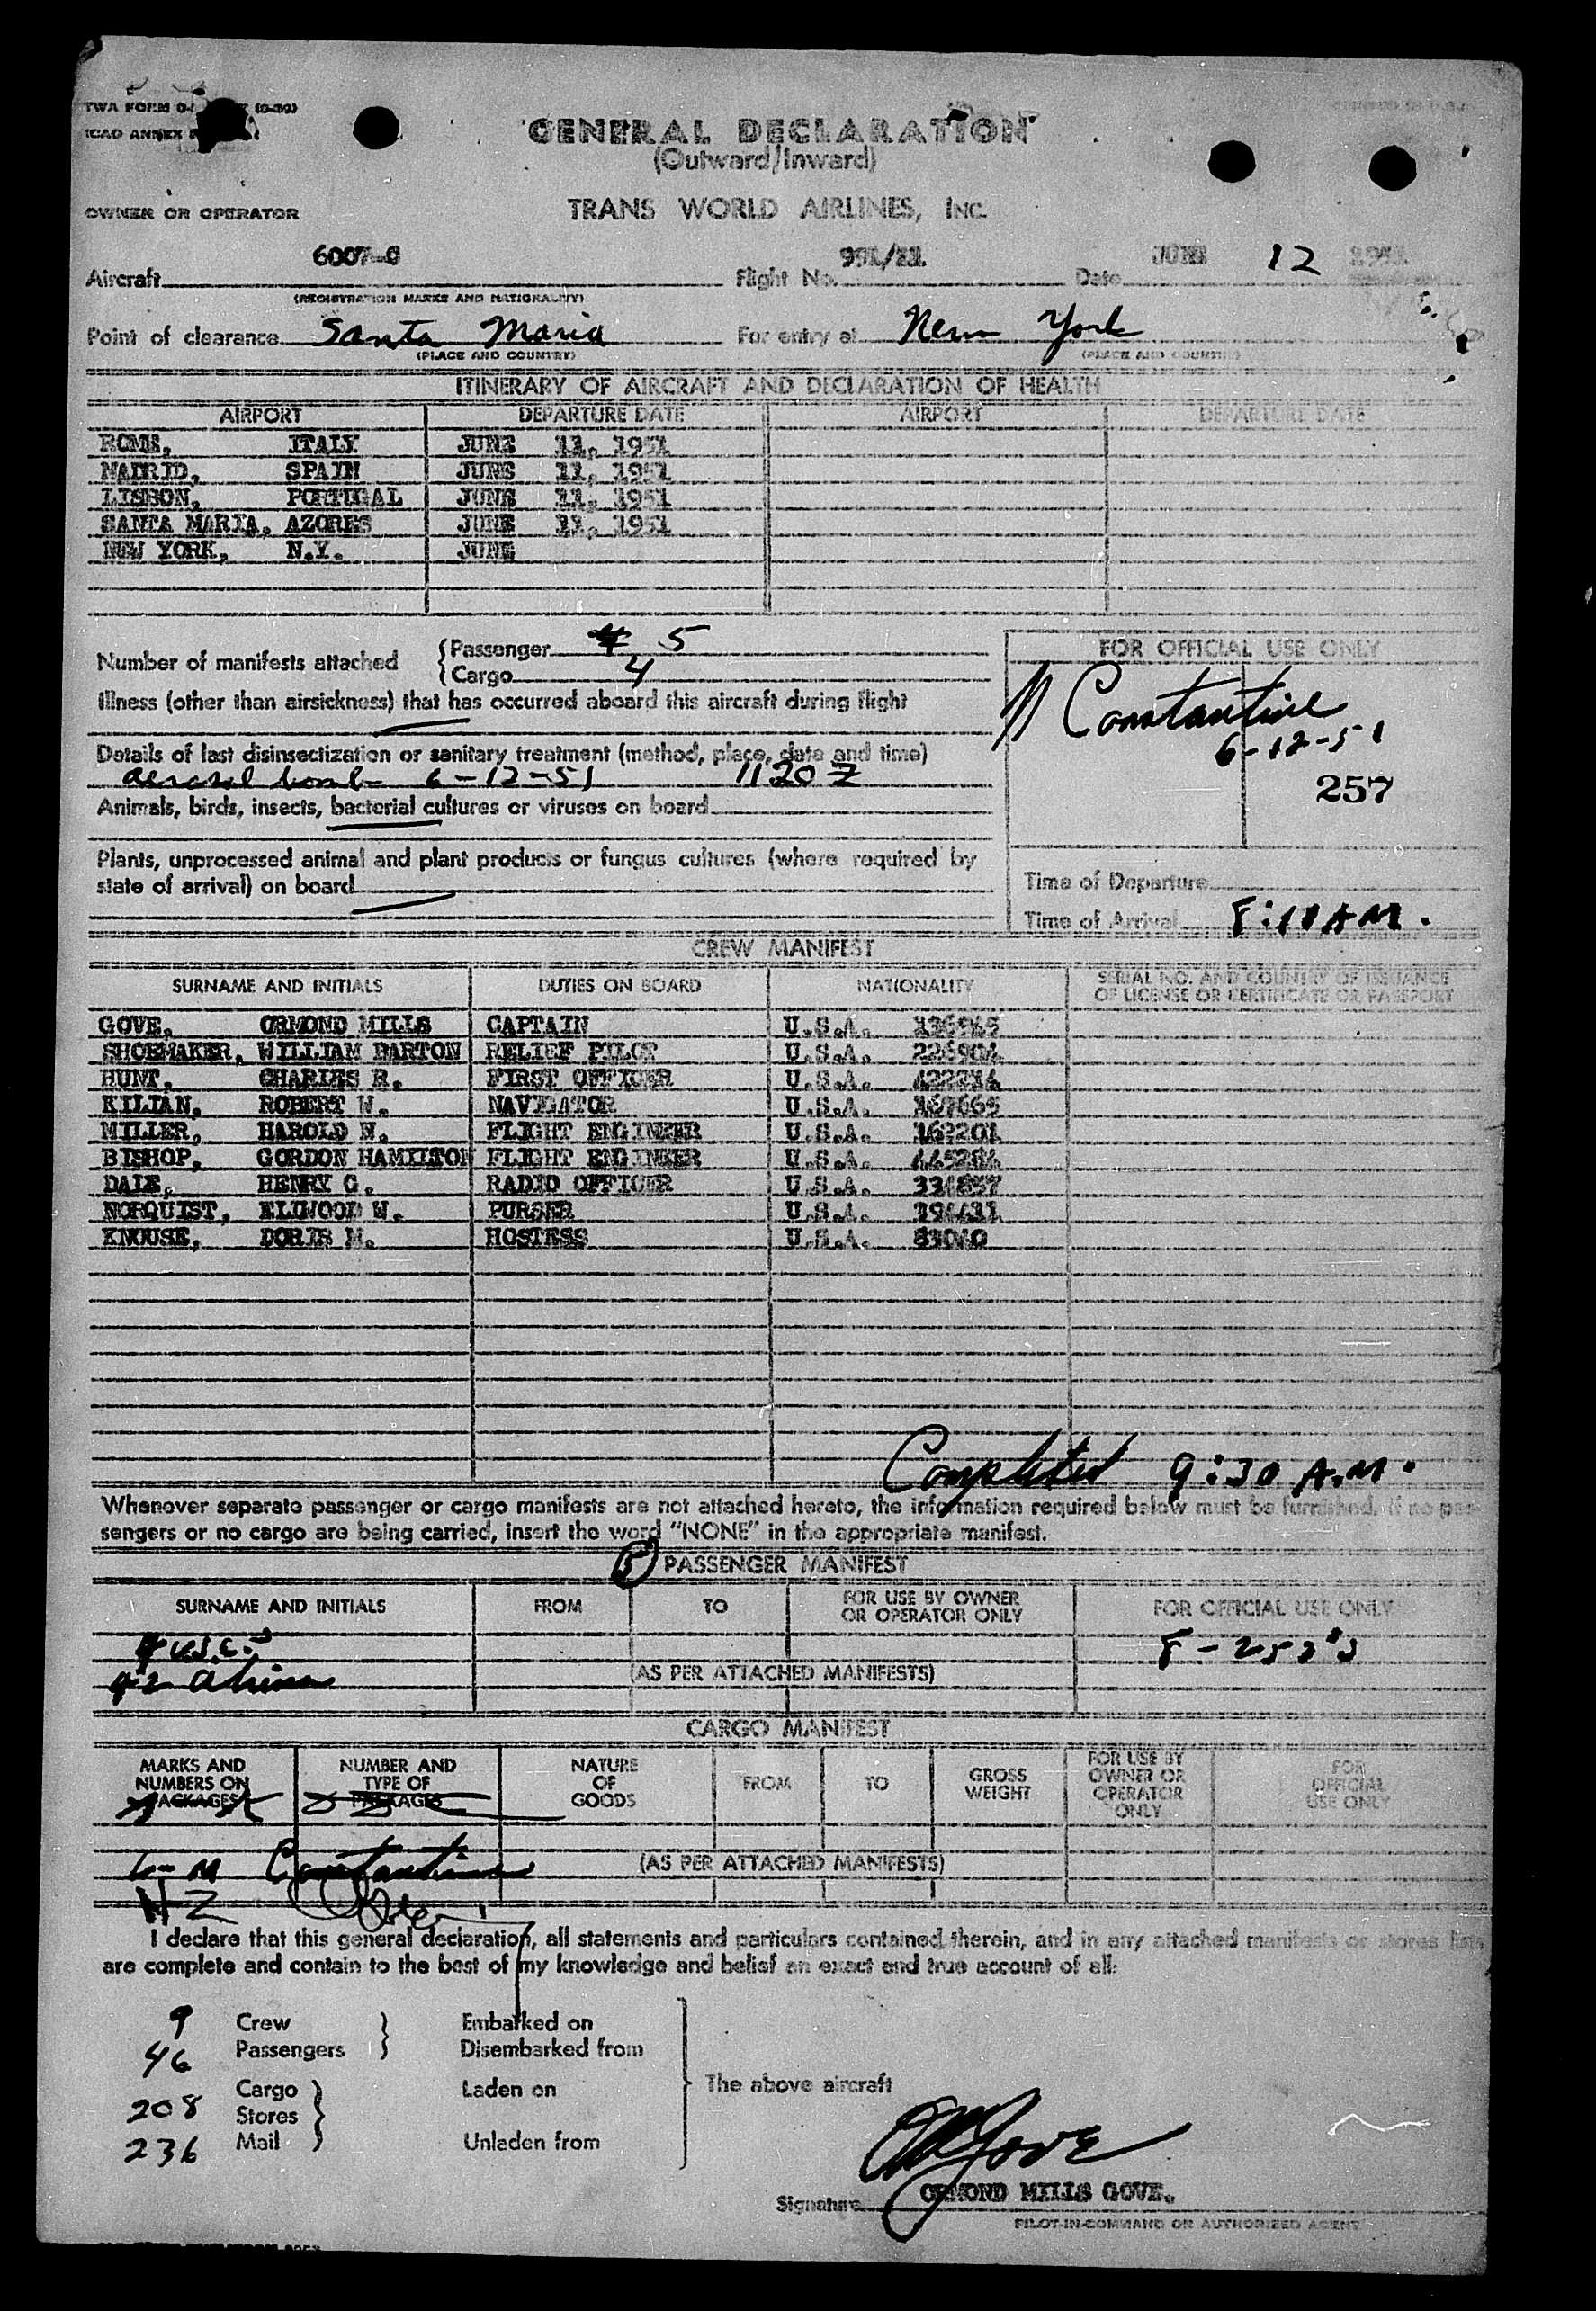 TWA FORM
ICAO ANNEX
GENERAL DECLARATION
(Outward/Inward)
OWNER OR OPERATOR TRANS WORLD AIRLINES, INC.
Aircraft 6007-C Flight No. Date JUNE 12 1951
(REGISTRATION MARKS AND NATIONALITY)
Point of clearance Santa Maria For entry at New York
(PLACE AND COUNTRY) (PLACE AND COUNTRY)
ITINERARY OF AIRCRAFT AND DECLARATION OF HEALTH
AIRPORT DEPARTURE DATE AIRPORT DEPARTURE DATE
ROME, ITALY JUNE 11, 1951
MADRID, SPAIN JUNE 11, 1951
LISBON, PORTUGAL JUNE 11, 1951
SANTA MARIA, AZORES JUNE 11, 1951
NEW YORK, N.Y. JUNE
Number of manifests attached { Passenger 4 5
{ Cargo 4
FOR OFFICIAL USE ONLY
Illness (other than airsickness) that has occurred aboard this aircraft during flight
Constantine
6-12-51
257
Details of last disinsectization or sanitary treatment (method, place, date and time)
aerosol bomb 6-12-51 1120 Z
Animals, birds, insects, bacterial cultures or viruses on board
Plants, unprocessed animal and plant products or fungus cultures (where required by
state of arrival) on board
Time of Departure
Time of Arrival 8:10 AM.
CREW MANIFEST
SURNAME AND INITIALS DUTIES ON BOARD NATIONALITY SERIAL NO. AND COUNTRY OF ISSUANCE
OF LICENSE OR CERTIFICATE OR PASSPORT
GOVE, ORMOND MILLS CAPTAIN U.S.A.
SHOEMAKER, WILLIAM BARTON RELIEF PILOT U.S.A.
HUNT, CHARLES R. FIRST OFFICER U.S.A.
KILIAN, ROBERT W. NAVIGATOR U.S.A.
MILLER, HAROLD W. FLIGHT ENGINEER U.S.A. 169201
BISHOP, GORDON HAMILTON FLIGHT ENGINEER U.S.A.
DALE, HENRY G. RADIO OFFICER U.S.A.
NORQUIST, ELLWOOD W. PURSER U.S.A.
KNOUSE, DORIS M. HOSTESS U.S.A.
Completed 9:30 A.M.
Whenever separate passenger or cargo manifests are not attached hereto, the information required below must be furnished. If no pas-
sengers or no cargo are being carried, insert the word "NONE" in the appropriate manifest.
5 PASSENGER MANIFEST
SURNAME AND INITIALS FROM TO FOR USE BY OWNER
OR OPERATOR ONLY FOR OFFICIAL USE ONLY
U.S.C.
(AS PER ATTACHED MANIFESTS)
CARGO MANIFEST
MARKS AND
NUMBERS ON
PACKAGES NUMBER AND
TYPE OF
PACKAGES NATURE
OF
GOODS FROM TO GROSS
WEIGHT FOR USE BY
OWNER OR
OPERATOR
ONLY FOR
OFFICIAL
USE ONLY
Constantine (AS PER ATTACHED MANIFESTS)
I declare that this general declaration, all statements and particulars contained therein, and in any attached manifests or stores lists
are complete and contain to the best of my knowledge and belief an exact and true account of all:
9 Crew } Embarked on
46 Passengers Disembarked from
The above aircraft
208 Cargo } Laden on
Stores
236 Mail Unladen from
OM Gove
ORMOND MILLS GOVE.
Signature
PILOT-IN-COMMAND OR AUTHORIZED AGENT